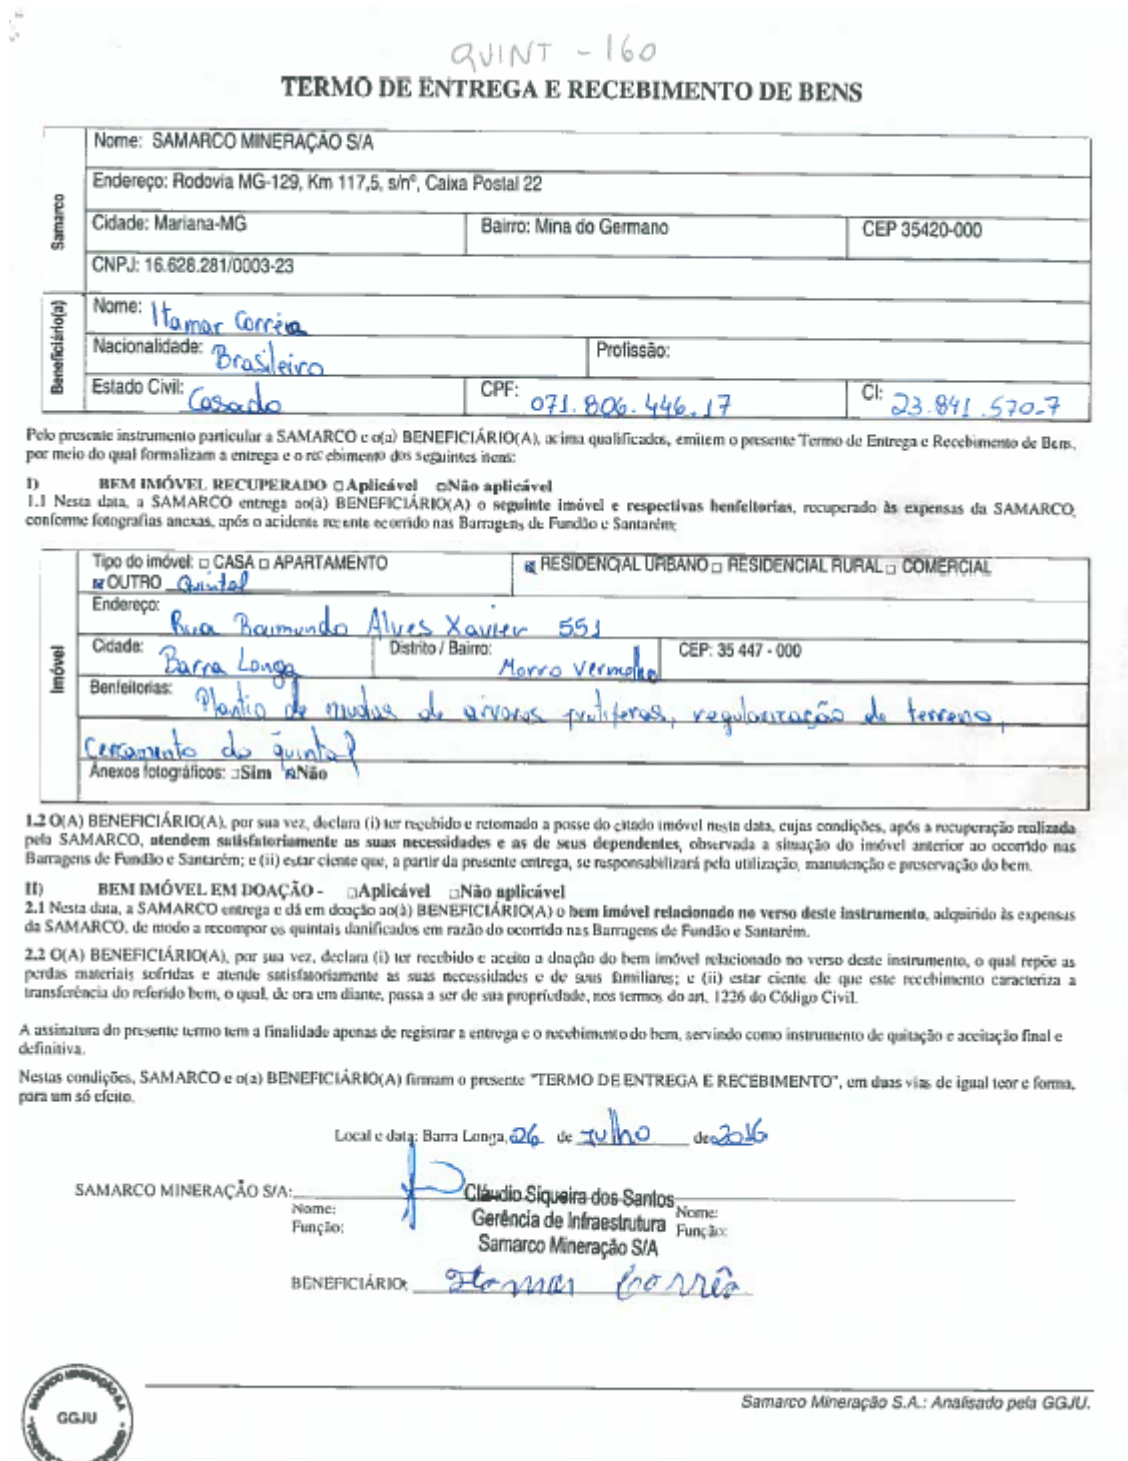 QUINT - 160
TERMO DE ENTREGA E RECEBIMENTO DE BENS
Samarco
Nome: SAMARCO MINERAÇÃO S/A
Endereço: Rodovia MG-129, Km 117,5, s/nº, Caixa Postal 22
Cidade: Mariana-MG Bairro: Mina do Germano CEP 35420-000
CNPJ: 16.628.281/0003-23
Beneficiário(a)
Nome: Itamar Corrêa
Nacionalidade: Brasileiro Profissão:
Estado Civil: Casado CPF: 071.806.446.17 CI: 23.841.570-7
Pelo presente instrumento particular a SAMARCO e o(a) BENEFICIÁRIO(A), acima qualificados, emitem o presente Termo de Entrega e Recebimento de Bens,
por meio do qual formalizam a entrega e o recebimento dos seguintes itens:
I) BEM IMÓVEL RECUPERADO □Aplicável □Não aplicável
1.1 Nesta data, a SAMARCO entrega ao(à) BENEFICIÁRIO(A) o seguinte imóvel e respectivas benfeitorias, recuperado às expensas da SAMARCO,
conforme fotografias anexas, após o acidente recente ocorrido nas Barragens de Fundão e Santarém;
Imóvel
Tipo do imóvel: □ CASA □ APARTAMENTO ☒ RESIDENCIAL URBANO □ RESIDENCIAL RURAL □ COMERCIAL
☒ OUTRO Quintal
Endereço: Rua Raimundo Alves Xavier 551
Cidade: Barra Longa Distrito / Bairro: Morro Vermelho CEP: 35 447 - 000
Benfeitorias: Plantio de mudas de arvores frutiferas, regularização do terreno,
Cercamento do quintal
Anexos fotográficos: □Sim ☒Não
1.2 O(A) BENEFICIÁRIO(A), por sua vez, declara (i) ter recebido e retomado a posse do citado imóvel nesta data, cujas condições, após a recuperação realizada
pela SAMARCO, atendem satisfatoriamente as suas necessidades e as de seus dependentes, observada a situação do imóvel anterior ao ocorrido nas
Barragens de Fundão e Santarém; e (ii) estar ciente que, a partir da presente entrega, se responsabilizará pela utilização, manutenção e preservação do bem.
II) BEM IMÓVEL EM DOAÇÃO - □Aplicável □Não aplicável
2.1 Nesta data, a SAMARCO entrega e dá em doação ao(à) BENEFICIÁRIO(A) o bem imóvel relacionado no verso deste instrumento, adquirido às expensas
da SAMARCO, de modo a recompor os quintais danificados em razão do ocorrido nas Barragens de Fundão e Santarém.
2.2 O(A) BENEFICIÁRIO(A), por sua vez, declara (i) ter recebido e aceito a doação do bem imóvel relacionado no verso deste instrumento, o qual repõe as
perdas materiais sofridas e atende satisfatoriamente as suas necessidades e de seus familiares; e (ii) estar ciente de que este recebimento caracteriza a
transferência do referido bem, o qual, de ora em diante, passa a ser de sua propriedade, nos termos do art. 1226 do Código Civil.
A assinatura do presente termo tem a finalidade apenas de registrar a entrega e o recebimento do bem, servindo como instrumento de quitação e aceitação final e
definitiva.
Nestas condições, SAMARCO e o(a) BENEFICIÁRIO(A) firmam o presente "TERMO DE ENTREGA E RECEBIMENTO", em duas vias de igual teor e forma,
para um só efeito.
Local e data: Barra Longa, 26 de Julho de 2016
SAMARCO MINERAÇÃO S/A: Cláudio Siqueira dos Santos
Nome: Gerência de Infraestrutura Nome:
Função: Samarco Mineração S/A Função:
BENEFICIÁRIO: Itamar Corrêa
SAMARCO MINERAÇÃO S.A.
GGJU
Samarco Mineração S.A.: Analisado pela GGJU.